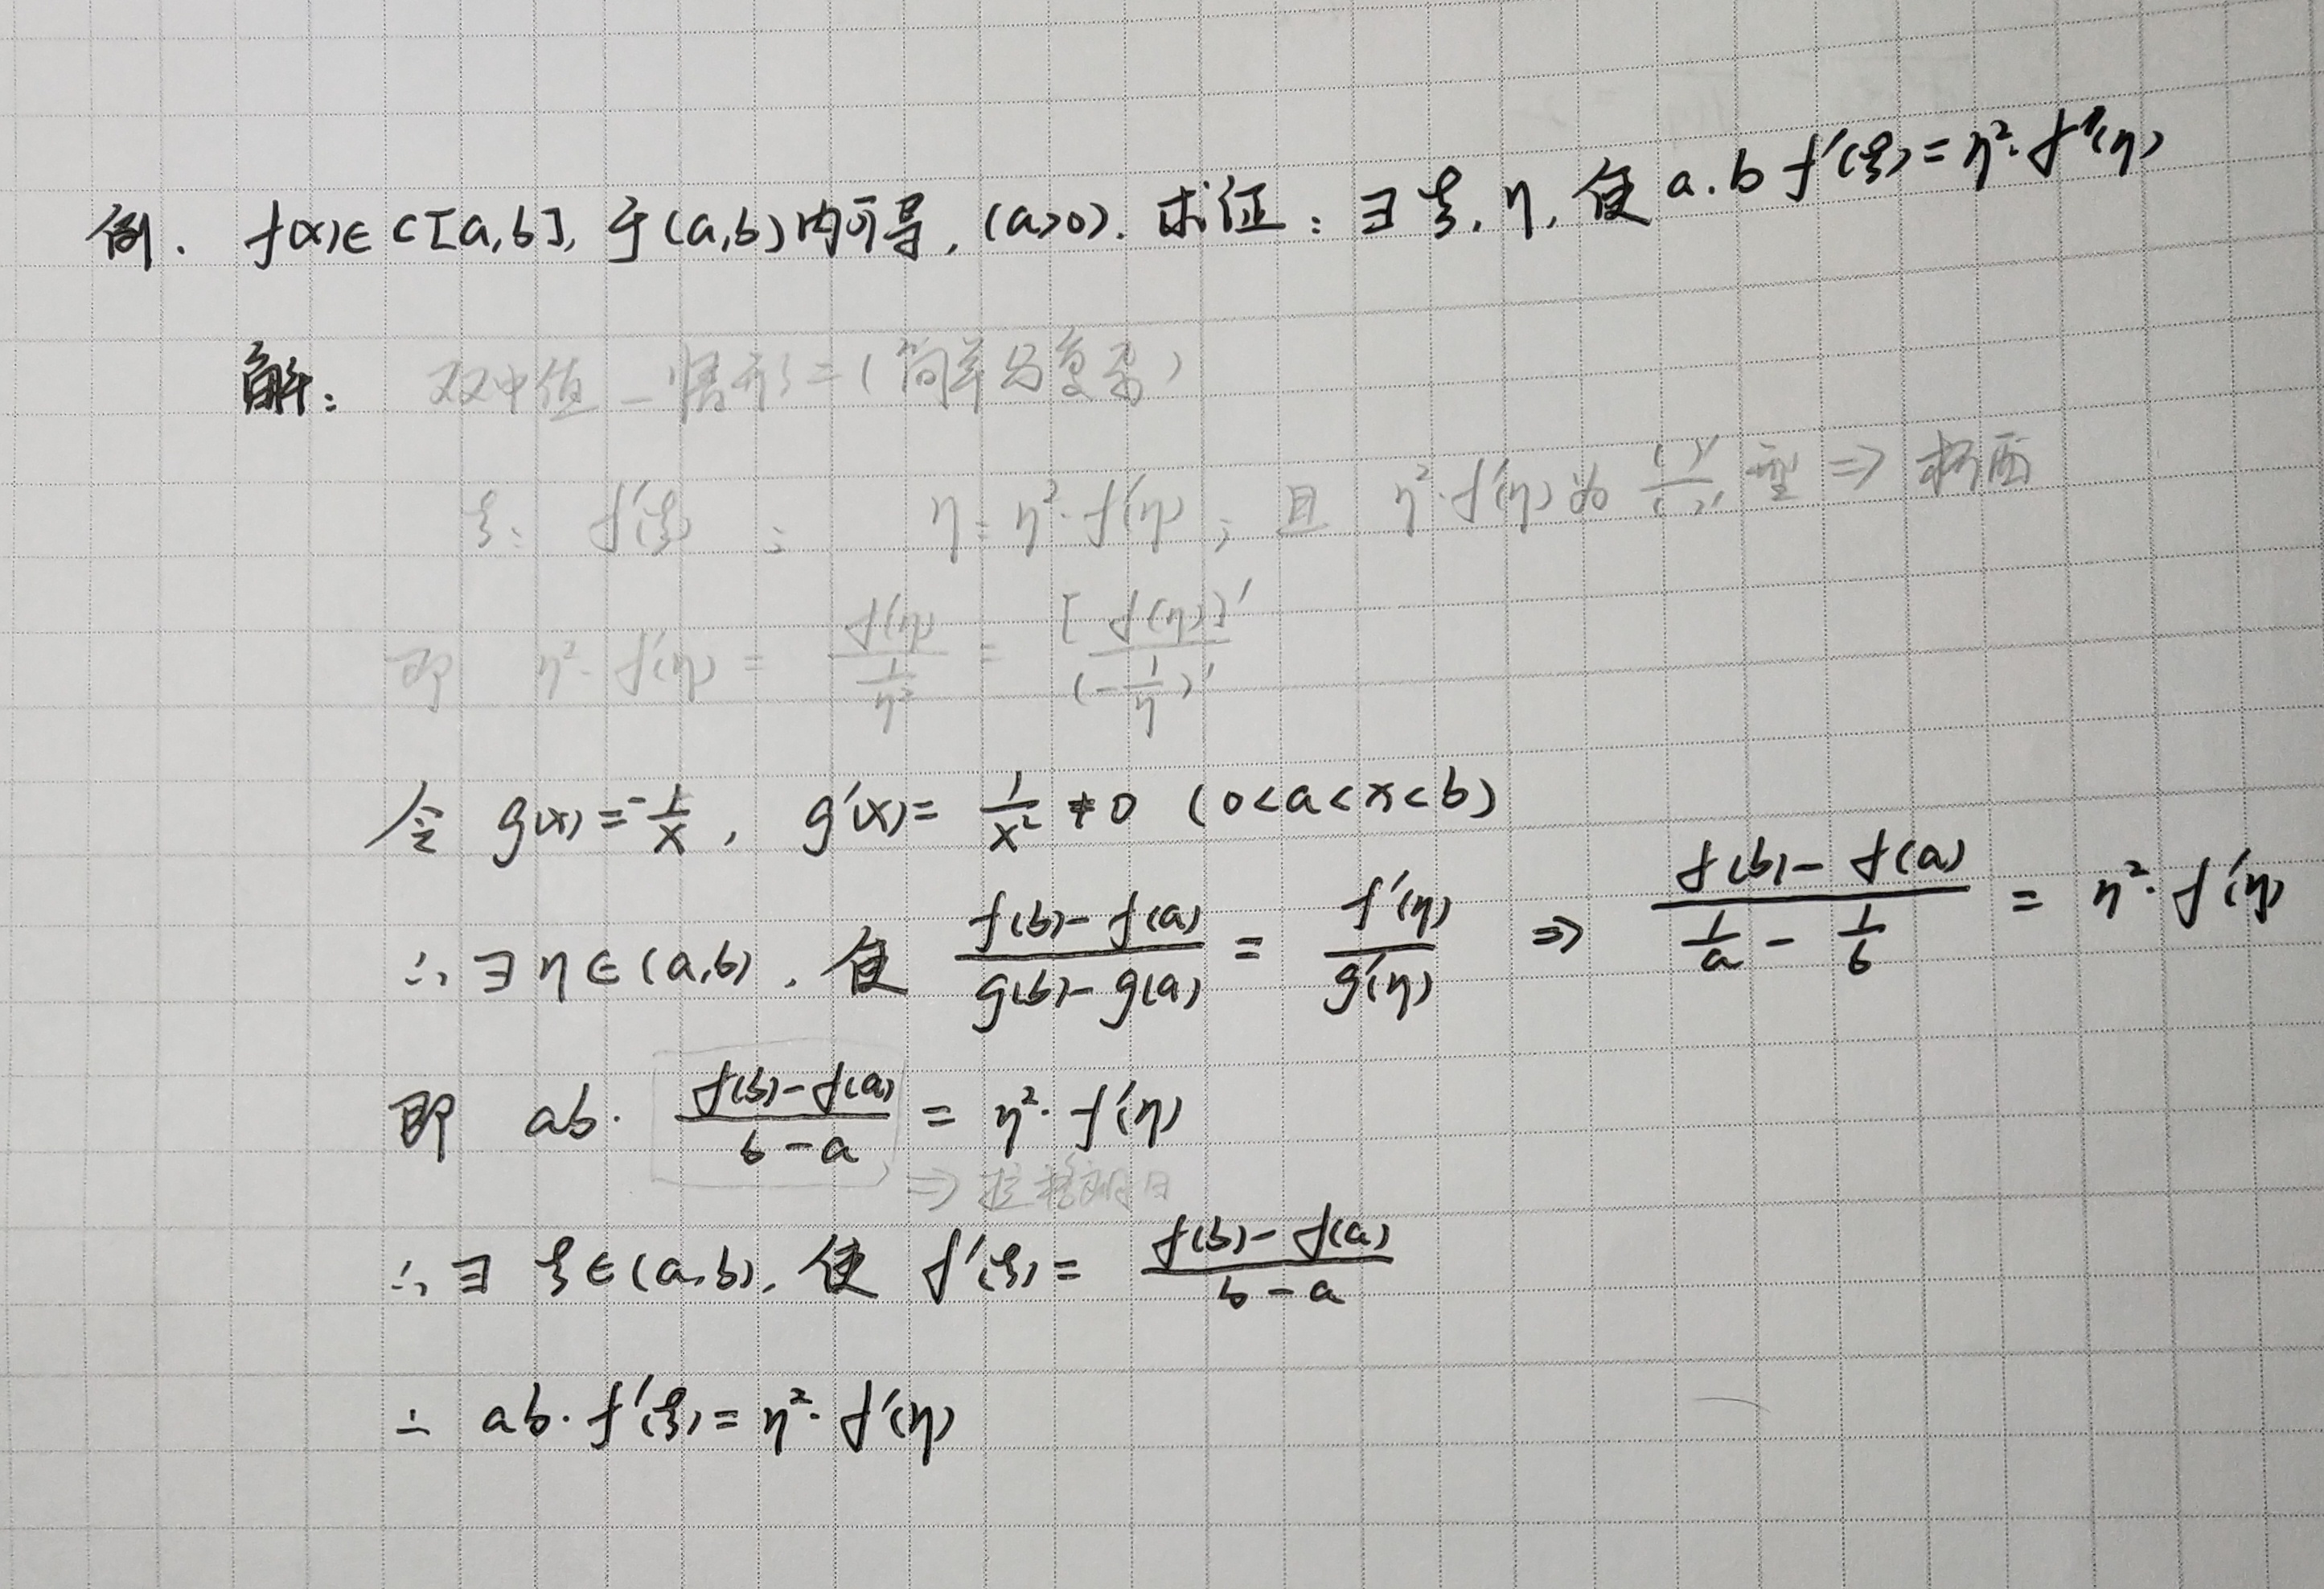 例. f(x)∈C[a,b], 于(a,b)内可导, (a>0). 求证: ∃ξ, η, 使 a·b f'(ξ)=η²·f'(η)
解: 双中值—情形二(简单与复杂)
ξ: f'(ξ) ; η: η²·f'(η) ; 且 η²·f'(η) 为 ( )'/( )' 型 ⇒ 柯西
即 η²·f'(η) = f'(η)/(1/η²) = [f(η)]'/(-1/η)'
令 g(x)=-1/x, g'(x)=1/x²≠0 (0<a<x<b)
∴∃η∈(a,b), 使 (f(b)-f(a))/(g(b)-g(a)) = f'(η)/g'(η) ⇒ (f(b)-f(a))/(1/a - 1/b) = η²·f'(η)
即 ab·(f(b)-f(a))/(b-a) = η²·f'(η)
⇒ 拉格朗日
∴∃ξ∈(a,b), 使 f'(ξ)=(f(b)-f(a))/(b-a)
∴ ab·f'(ξ)=η²·f'(η)